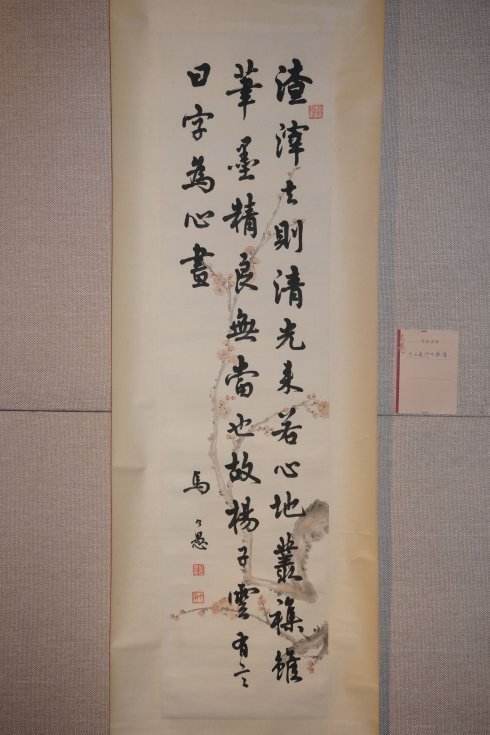 渣滓去則清光來若心地叢襍雖
筆墨精良無當也故楊子雲有言
曰字為心畫
馬公愚